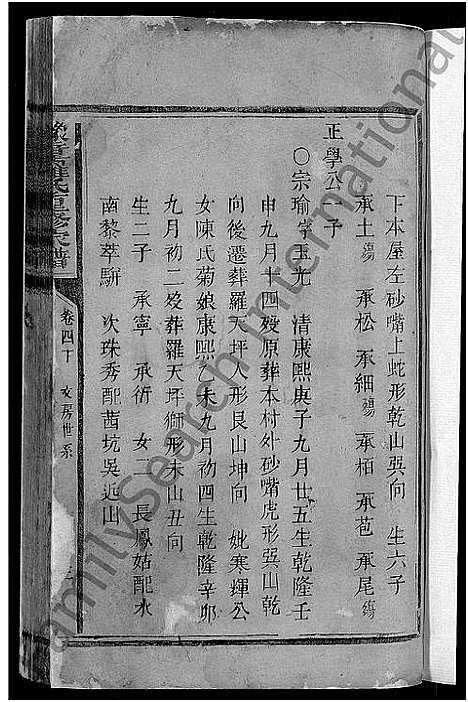 下本屋左砂嘴上蛇形乾山巽向 生六子
承土殤 承松 承細殤 承栢 承苞 承尾殤
正學公 子
〇宗瑜字玉光 清康熙庚子九月廿五生乾隆壬
申九月十四歿原葬本村外砂嘴虎形巽山乾
向後遷葬羅天坪人形艮山坤向 妣寒輝公
女陳氏菊娘康熙乙未九月初四生乾隆辛卯
九月初二歿葬羅天坪獅形未山丑向
生二子 承寧 承衍 女二 長鳳姑配水
南黎萃駢 次珠秀配茜坑吳远山
羅氏重修宗譜
卷四下 文房世系
FamilySearch International